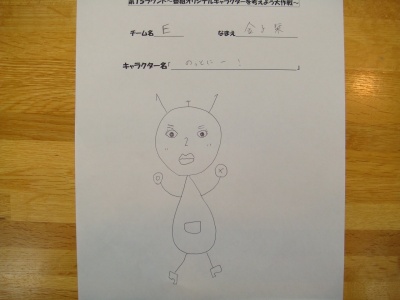 第15ラウンド～番組オリジナルキャラクターを考えよう大作戦～
チーム名 E なまえ
キャラクター名「 」